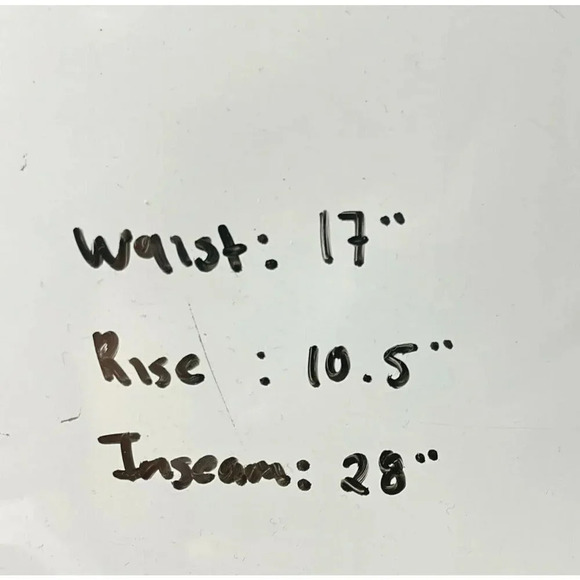 Waist: 17"
Rise : 10.5"
Inseam: 28"